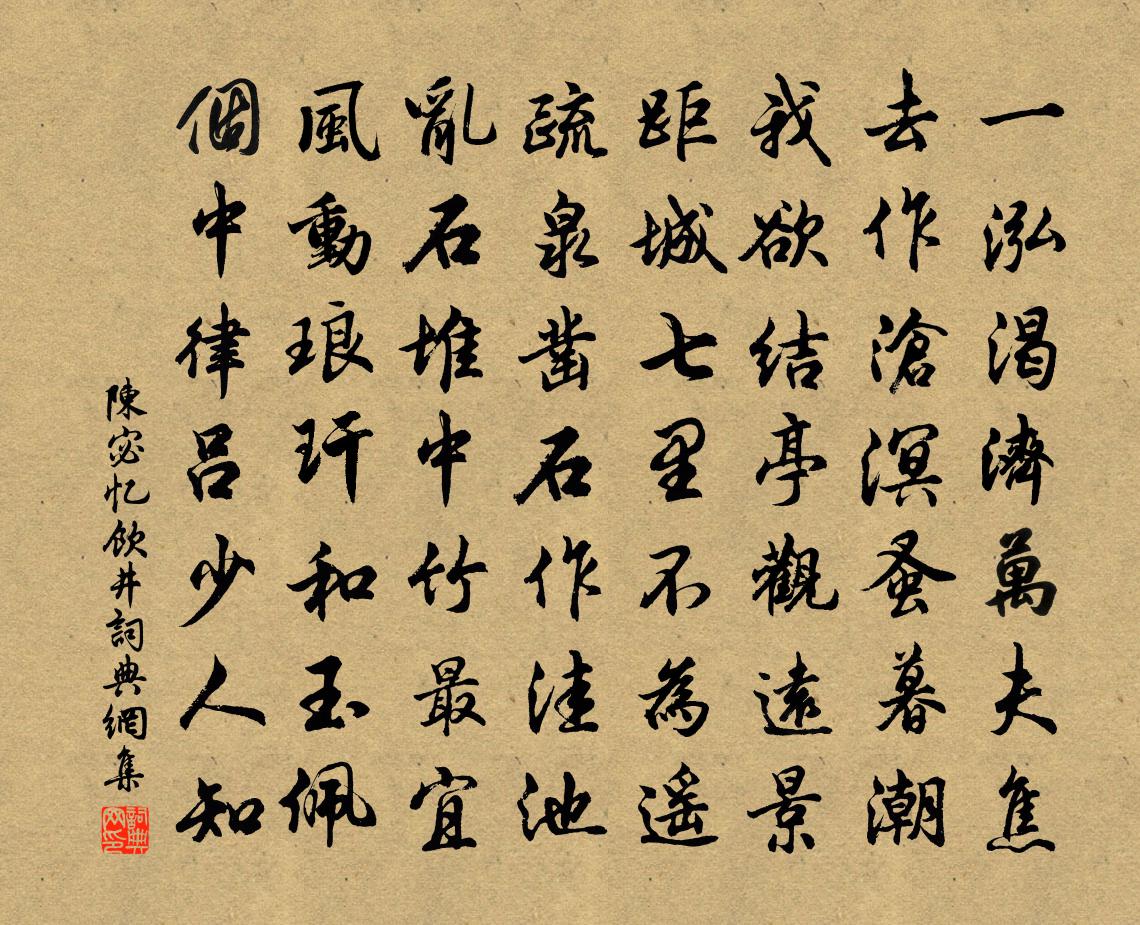 一泓渴濟萬夫焦
去作滄溟蚤暮潮
我欲結亭觀遠景
距城七里不為遥
疏泉凿石作洼池
亂石堆中竹最宜
風動琅玕和玉佩
個中律呂少人知
陳宓忆飲井詞典網集
詞典网印